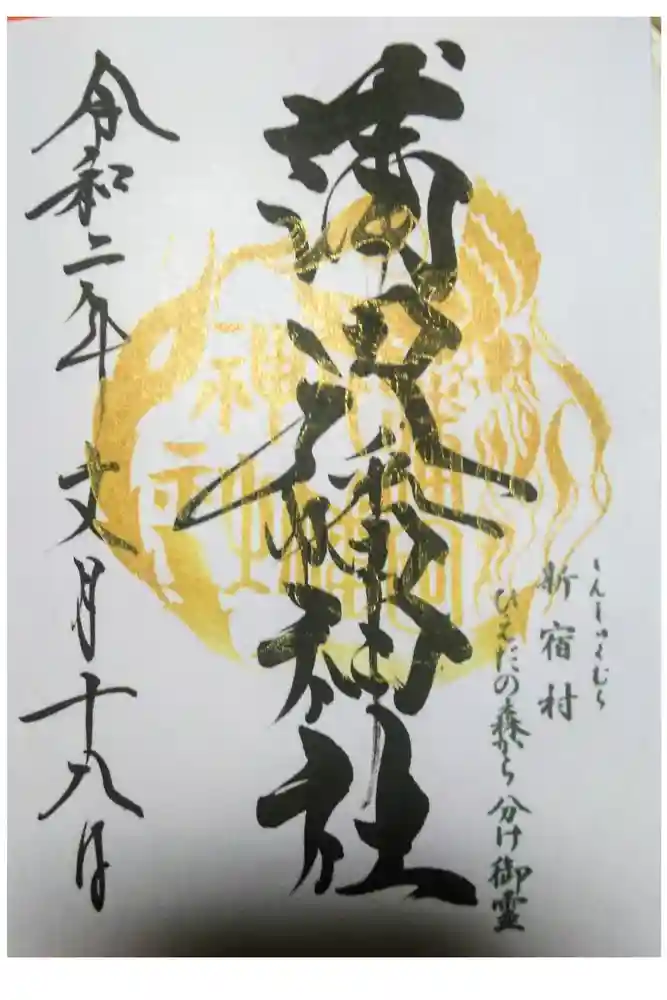 しんしゅくむら
新宿村
ひえだの森から 分け御霊
蒲田八幡神社
令和二年 文月十八日